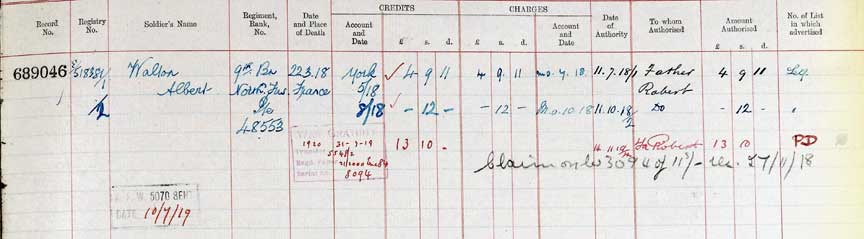 CREDITS CHARGES
Record No. Registry No. Soldier's Name Regiment, Rank, No. Date and Place of Death Account and Date £ s. d. £ s. d. Account and Date Date of Authority To whom Authorised Amount Authorised £ s. d. No. of List in which advertised
689046 Walton 9th Bn 22.3.18 York 4 9 11 4 9 11 11.7.18 Father 4 9 11
Albert North. Fus. France 5/18 Robert
2 Pte 8/18 - 12 - - 12 - Mo.10.18 11.10.18 Do - 12 - "
48553 2
WAR GRATUITY
1920 31-7-19 13 10 - Fa Robert 13 10 PD
5548/2
Claim 11/-
8094 /11/18
5070
DATE 10/7/19